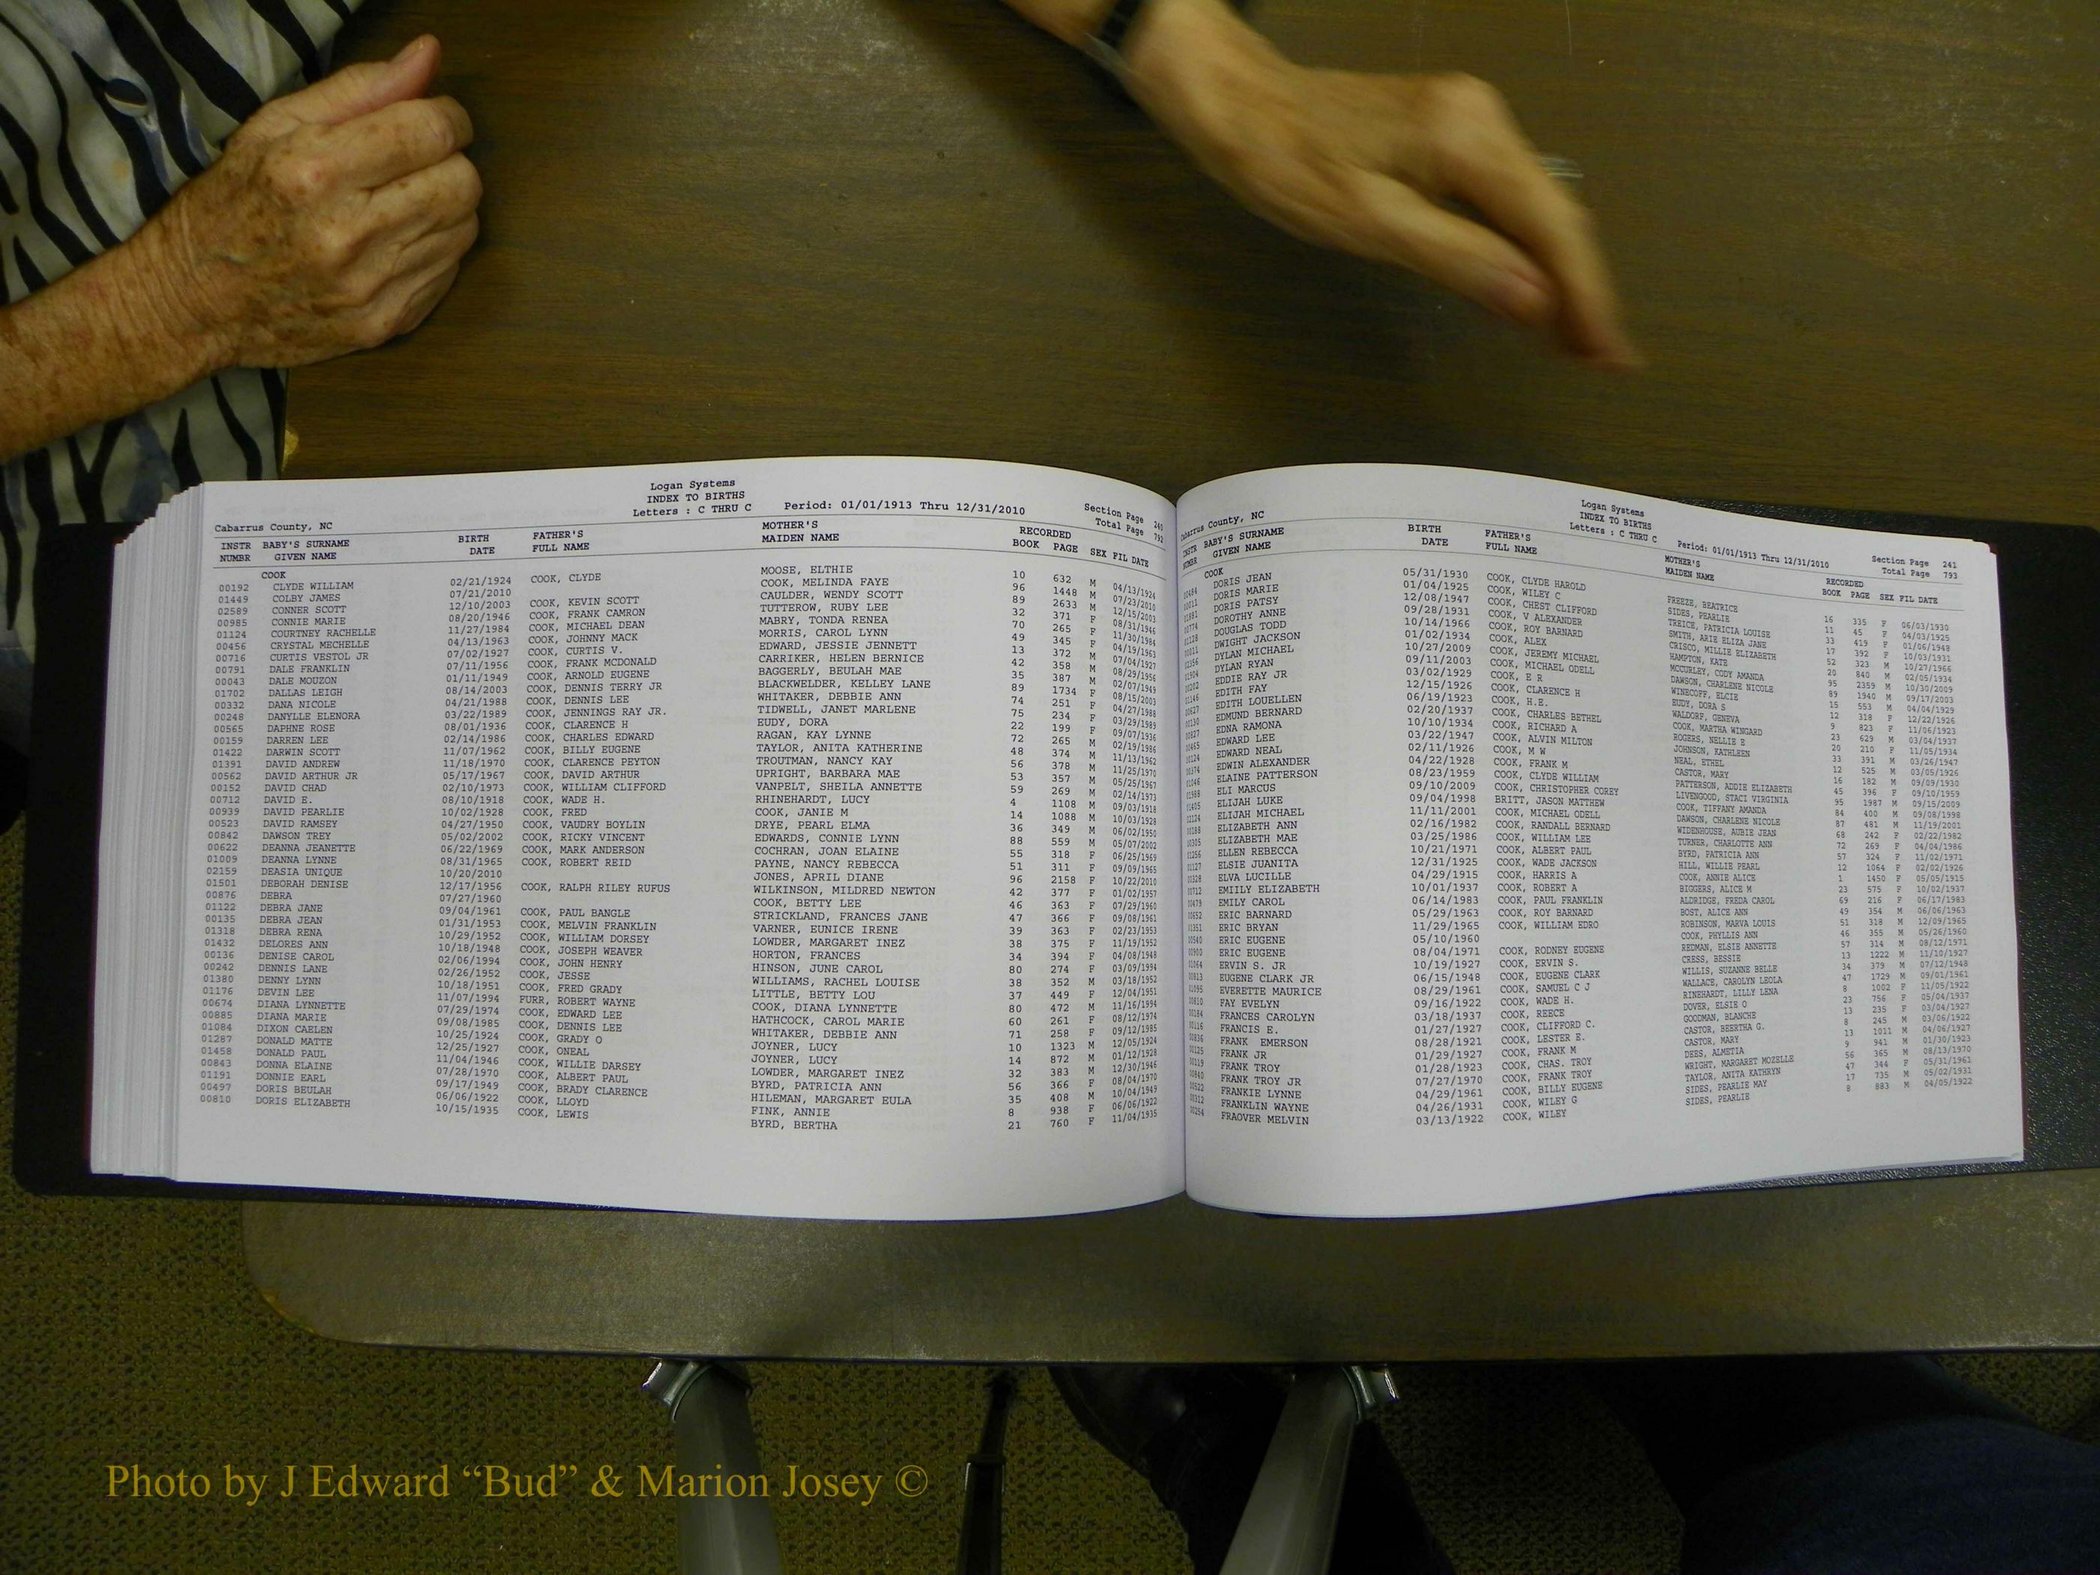 Logan Systems
INDEX TO BIRTHS
Letters : C THRU C Period: 01/01/1913 Thru 12/31/2010
Section Page 240
Total Page 792
Cabarrus County, NC
INSTR BABY'S SURNAME BIRTH FATHER'S MOTHER'S RECORDED
NUMBR GIVEN NAME DATE FULL NAME MAIDEN NAME BOOK PAGE SEX FIL DATE
COOK
00192 CLYDE WILLIAM 02/21/1924 COOK, CLYDE MOOSE, ELTHIE 10 632 M 04/13/1924
01449 COLBY JAMES 07/21/2010 COOK, MELINDA FAYE 96 1448 M 07/23/2010
02589 CONNER SCOTT 12/10/2003 COOK, KEVIN SCOTT CAULDER, WENDY SCOTT 89 2633 M 12/15/2003
00985 CONNIE MARIE 08/20/1946 COOK, FRANK CAMRON TUTTEROW, RUBY LEE 32 371 F 08/31/1946
01124 COURTNEY RACHELLE 11/27/1984 COOK, MICHAEL DEAN MABRY, TONDA RENEA 70 265 F 11/30/1984
00456 CRYSTAL MECHELLE 04/13/1963 COOK, JOHNNY MACK MORRIS, CAROL LYNN 49 345 F 04/19/1963
00716 CURTIS VESTOL JR 07/02/1927 COOK, CURTIS V. EDWARD, JESSIE JENNETT 13 372 M 07/04/1927
00791 DALE FRANKLIN 07/11/1956 COOK, FRANK MCDONALD CARRIKER, HELEN BERNICE 42 358 M 08/29/1956
00043 DALE MOUZON 01/11/1949 COOK, ARNOLD EUGENE BAGGERLY, BEULAH MAE 35 387 M 02/07/1949
01702 DALLAS LEIGH 08/14/2003 COOK, DENNIS TERRY JR BLACKWELDER, KELLEY LANE 89 1734 F 08/15/2003
00332 DANA NICOLE 04/21/1988 COOK, DENNIS LEE WHITAKER, DEBBIE ANN 74 251 F 04/27/1988
00248 DANYLLE ELENORA 03/22/1989 COOK, JENNINGS RAY JR. TIDWELL, JANET MARLENE 75 234 F 03/29/1989
00565 DAPHNE ROSE 08/01/1936 COOK, CLARENCE H EUDY, DORA 22 199 F 09/07/1936
00159 DARREN LEE 02/14/1986 COOK, CHARLES EDWARD RAGAN, KAY LYNNE 72 265 M 02/19/1986
01422 DARWIN SCOTT 11/07/1962 COOK, BILLY EUGENE TAYLOR, ANITA KATHERINE 48 374 M 11/13/1962
01391 DAVID ANDREW 11/18/1970 COOK, CLARENCE PEYTON TROUTMAN, NANCY KAY 56 378 M 11/25/1970
00562 DAVID ARTHUR JR 05/17/1967 COOK, DAVID ARTHUR UPRIGHT, BARBARA MAE 53 357 M 05/25/1967
00152 DAVID CHAD 02/10/1973 COOK, WILLIAM CLIFFORD VANPELT, SHEILA ANNETTE 59 269 M 02/14/1973
00712 DAVID E. 08/10/1918 COOK, WADE H. RHINEHARDT, LUCY 4 1108 M 09/03/1918
00939 DAVID PEARLIE 10/02/1928 COOK, FRED COOK, JANIE M 14 1088 M 10/03/1928
00523 DAVID RAMSEY 04/27/1950 COOK, VAUDRY BOYLIN DRYE, PEARL ELMA 36 349 M 06/02/1950
00842 DAWSON TREY 05/02/2002 COOK, RICKY VINCENT EDWARDS, CONNIE LYNN 88 559 M 05/07/2002
00622 DEANNA JEANETTE 06/22/1969 COOK, MARK ANDERSON COCHRAN, JOAN ELAINE 55 318 F 06/25/1969
01009 DEANNA LYNNE 08/31/1965 COOK, ROBERT REID PAYNE, NANCY REBECCA 51 311 F 09/09/1965
02159 DEASIA UNIQUE 10/20/2010 JONES, APRIL DIANE 96 2158 F 10/22/2010
01501 DEBORAH DENISE 12/17/1956 COOK, RALPH RILEY RUFUS WILKINSON, MILDRED NEWTON 42 377 F 01/02/1957
00876 DEBRA 07/27/1960 COOK, BETTY LEE 46 363 F 07/29/1960
01122 DEBRA JANE 09/04/1961 COOK, PAUL BANGLE STRICKLAND, FRANCES JANE 47 366 F 09/08/1961
00135 DEBRA JEAN 01/31/1953 COOK, MELVIN FRANKLIN VARNER, EUNICE IRENE 39 363 F 02/23/1953
01318 DEBRA RENA 10/29/1952 COOK, WILLIAM DORSEY LOWDER, MARGARET INEZ 38 375 F 11/19/1952
01432 DELORES ANN 10/18/1948 COOK, JOSEPH WEAVER HORTON, FRANCES 34 394 F 04/08/1948
00136 DENISE CAROL 02/06/1994 COOK, JOHN HENRY HINSON, JUNE CAROL 80 274 F 03/09/1994
00242 DENNIS LANE 02/26/1952 COOK, JESSE WILLIAMS, RACHEL LOUISE 38 352 M 03/18/1952
01380 DENNY LYNN 10/18/1951 COOK, FRED GRADY LITTLE, BETTY LOU 37 449 F 12/04/1951
01176 DEVIN LEE 11/07/1994 FURR, ROBERT WAYNE COOK, DIANA LYNNETTE 80 472 M 11/16/1994
00674 DIANA LYNNETTE 07/29/1974 COOK, EDWARD LEE HATHCOCK, CAROL MARIE 60 261 F 08/12/1974
00885 DIANA MARIE 09/08/1985 COOK, DENNIS LEE WHITAKER, DEBBIE ANN 71 258 F 09/12/1985
01084 DIXON CAELEN 10/25/1924 COOK, GRADY O JOYNER, LUCY 10 1323 M 12/05/1924
01287 DONALD MATTE 12/25/1927 COOK, ONEAL JOYNER, LUCY 14 872 M 01/12/1928
01458 DONALD PAUL 11/04/1946 COOK, WILLIE DARSEY LOWDER, MARGARET INEZ 32 383 M 12/30/1946
00843 DONNA ELAINE 07/28/1970 COOK, ALBERT PAUL BYRD, PATRICIA ANN 56 366 F 08/04/1970
01191 DONNIE EARL 09/17/1949 COOK, BRADY CLARENCE HILEMAN, MARGARET EULA 35 408 M 10/04/1949
00497 DORIS BEULAH 06/06/1922 COOK, LLOYD FINK, ANNIE 8 938 F 06/06/1922
00810 DORIS ELIZABETH 10/15/1935 COOK, LEWIS BYRD, BERTHA 21 760 F 11/04/1935
Logan Systems
INDEX TO BIRTHS
Letters : C THRU C Period: 01/01/1913 Thru 12/31/2010
Section Page 241
Total Page 793
Cabarrus County, NC
INSTR BABY'S SURNAME BIRTH FATHER'S MOTHER'S RECORDED
NUMBR GIVEN NAME DATE FULL NAME MAIDEN NAME BOOK PAGE SEX FIL DATE
COOK
DORIS JEAN 05/31/1930 COOK, CLYDE HAROLD FREEZE, BEATRICE 16 335 F 06/03/1930
DORIS MARIE 01/04/1925 COOK, WILEY C SIDES, PEARLIE 11 45 F 04/03/1925
DORIS PATSY 12/08/1947 COOK, CHEST CLIFFORD TREICE, PATRICIA LOUISE 33 419 F 01/06/1948
DOROTHY ANNE 09/28/1931 COOK, V ALEXANDER SMITH, ARIE ELIZA JANE 17 392 F 10/03/1931
DOUGLAS TODD 10/14/1966 COOK, ROY BARNARD CRISCO, MILLIE ELIZABETH 52 323 M 10/27/1966
DWIGHT JACKSON 01/02/1934 COOK, ALEX HAMPTON, KATE 20 840 M 02/05/1934
DYLAN MICHAEL 10/27/2009 COOK, JEREMY MICHAEL MCCURLEY, CODY AMANDA 95 2359 M 10/30/2009
DYLAN RYAN 09/11/2003 COOK, MICHAEL ODELL DAWSON, CHARLENE NICOLE 89 1940 M 09/17/2003
EDDIE RAY JR 03/02/1929 COOK, E R WINECOFF, ELCIE 15 553 M 04/04/1929
EDITH FAY 12/15/1926 COOK, CLARENCE H EUDY, DORA S 12 318 F 12/22/1926
EDITH LOUELLEN 06/19/1923 COOK, H.E. WALDORF, GENEVA 9 823 F 11/06/1923
EDMUND BERNARD 02/20/1937 COOK, CHARLES BETHEL COOK, MARTHA WINGARD 23 629 M 03/04/1937
EDNA RAMONA 10/10/1934 COOK, RICHARD A ROGERS, NELLIE E 20 210 F 11/05/1934
EDWARD LEE 03/22/1947 COOK, ALVIN MILTON JOHNSON, KATHLEEN 33 391 M 03/26/1947
EDWARD NEAL 02/11/1926 COOK, M W NEAL, ETHEL 12 525 M 03/05/1926
EDWIN ALEXANDER 04/22/1928 COOK, FRANK M CASTOR, MARY 16 182 M 09/09/1930
ELAINE PATTERSON 08/23/1959 COOK, CLYDE WILLIAM PATTERSON, ADDIE ELIZABETH 45 396 F 09/10/1959
ELI MARCUS 09/10/2009 COOK, CHRISTOPHER COREY LIVENGOOD, STACI VIRGINIA 95 1987 M 09/15/2009
ELIJAH LUKE 09/04/1998 BRITT, JASON MATTHEW COOK, TIFFANY AMANDA 84 400 M 09/08/1998
ELIJAH MICHAEL 11/11/2001 COOK, MICHAEL ODELL DAWSON, CHARLENE NICOLE 87 481 M 11/19/2001
ELIZABETH ANN 02/16/1982 COOK, RANDALL BERNARD WIDENHOUSE, AUBIE JEAN 68 242 F 02/22/1982
ELIZABETH MAE 03/25/1986 COOK, WILLIAM LEE TURNER, CHARLOTTE ANN 72 269 F 04/04/1986
ELLEN REBECCA 10/21/1971 COOK, ALBERT PAUL BYRD, PATRICIA ANN 57 324 F 11/02/1971
ELSIE JUANITA 12/31/1925 COOK, WADE JACKSON HILL, WILLIE PEARL 12 1064 F 02/02/1926
ELVA LUCILLE 04/29/1915 COOK, HARRIS A COOK, ANNIE ALICE 1 1450 F 05/05/1915
EMIILY ELIZABETH 10/01/1937 COOK, ROBERT A BIGGERS, ALICE M 23 575 F 10/02/1937
EMILY CAROL 06/14/1983 COOK, PAUL FRANKLIN ALDRIDGE, FREDA CAROL 69 216 F 06/17/1983
ERIC BARNARD 05/29/1963 COOK, ROY BARNARD BOST, ALICE ANN 49 354 M 06/06/1963
ERIC BRYAN 11/29/1965 COOK, WILLIAM EDRO ROBINSON, MARVA LOUIS 51 318 M 12/09/1965
ERIC EUGENE 05/10/1960 COOK, PHYLLIS ANN 46 355 M 05/26/1960
ERIC EUGENE 08/04/1971 COOK, RODNEY EUGENE REDMAN, ELSIE ANNETTE 57 314 M 08/12/1971
ERVIN S. JR 10/19/1927 COOK, ERVIN S. CRESS, BESSIE 13 1222 M 11/10/1927
EUGENE CLARK JR 06/15/1948 COOK, EUGENE CLARK WILLIS, SUZANNE BELLE 34 379 M 07/12/1948
EVERETTE MAURICE 08/29/1961 COOK, SAMUEL C J WALLACE, CAROLYN LEOLA 47 1729 M 09/01/1961
FAY EVELYN 09/16/1922 COOK, WADE H. RINEHARDT, LILLY LENA 8 1002 F 11/05/1922
FRANCES CAROLYN 03/18/1937 COOK, REECE DOVER, ELSIE O 23 756 F 05/04/1937
FRANCIS E. 01/27/1927 COOK, CLIFFORD C. GOODMAN, BLANCHE 13 235 F 03/04/1927
FRANK EMERSON 08/28/1921 COOK, LESTER E. CASTOR, BEERTHA G. 8 245 M 03/06/1922
FRANK JR 01/29/1927 COOK, FRANK M CASTOR, MARY 13 1011 M 04/06/1927
FRANK TROY 01/28/1923 COOK, CHAS. TROY DEES, ALMETIA 9 941 M 01/30/1923
FRANK TROY JR 07/27/1970 COOK, FRANK TROY WRIGHT, MARGARET MOZELLE 56 365 M 08/13/1970
FRANKIE LYNNE 04/29/1961 COOK, BILLY EUGENE TAYLOR, ANITA KATHRYN 47 344 F 05/31/1961
FRANKLIN WAYNE 04/26/1931 COOK, WILEY G SIDES, PEARLIE MAY 17 735 M 05/02/1931
FRAOVER MELVIN 03/13/1922 COOK, WILEY SIDES, PEARLIE 8 883 M 04/05/1922
Photo by J Edward “Bud” & Marion Josey ©